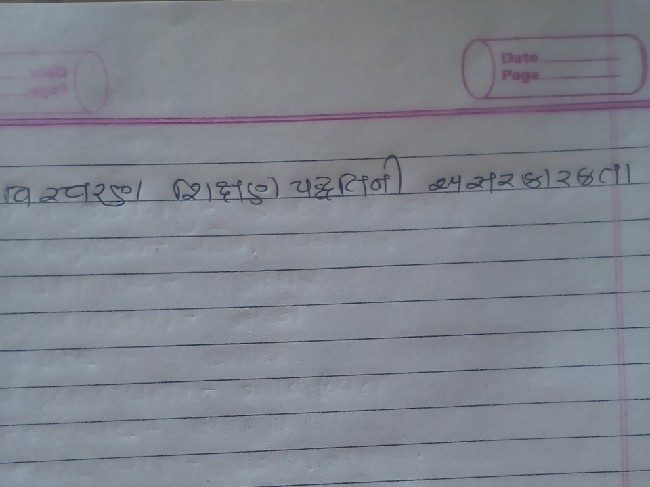 Date
Page
વિસ્વરણ શિક્ષણ પદ્ધતિની અસરકારકતા